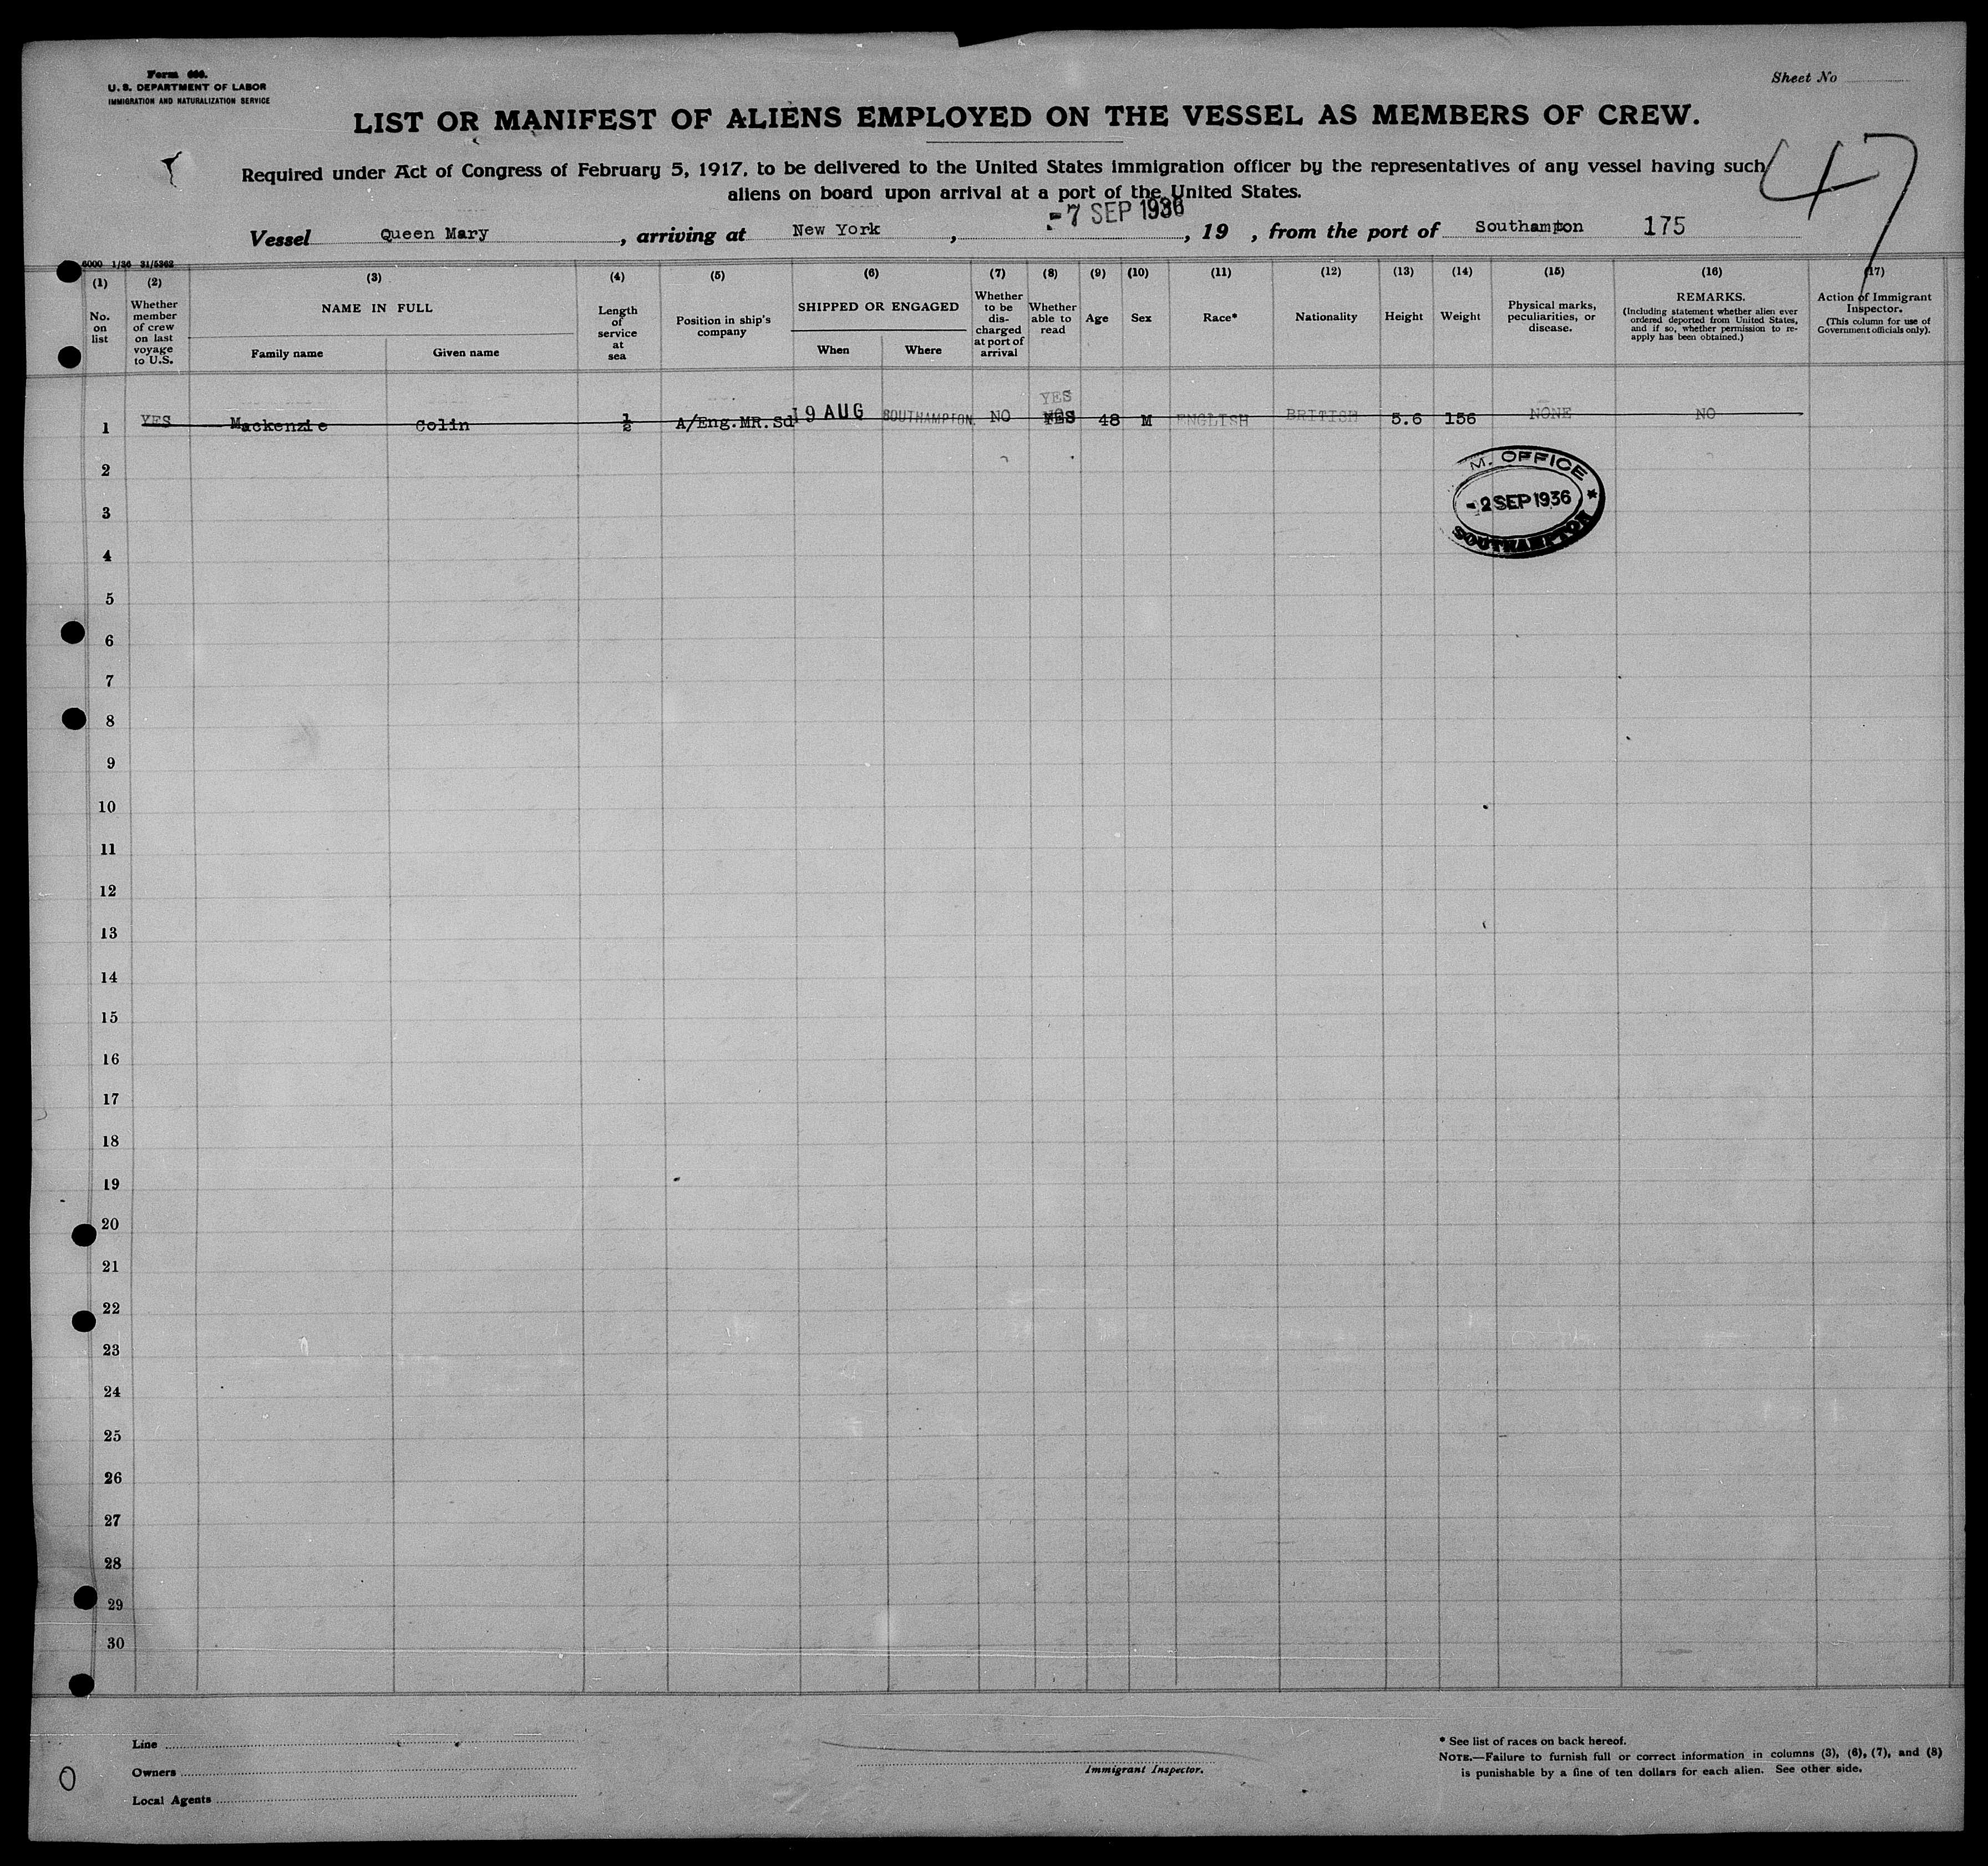 Form 680.
U. S. DEPARTMENT OF LABOR
IMMIGRATION AND NATURALIZATION SERVICE
Sheet No
LIST OR MANIFEST OF ALIENS EMPLOYED ON THE VESSEL AS MEMBERS OF CREW.
47
Required under Act of Congress of February 5, 1917, to be delivered to the United States immigration officer by the representatives of any vessel having such
aliens on board upon arrival at a port of the United States.
Vessel Queen Mary, arriving at New York, -7 SEP 1936, 19 , from the port of Southampton 175
6000 1/36 31/5362
(1) (2) (3) (4) (5) (6) (7) (8) (9) (10) (11) (12) (13) (14) (15) (16) (17)
No. on list
Whether member of crew on last voyage to U.S.
NAME IN FULL
Family name
Given name
Length of service at sea
Position in ship's company
SHIPPED OR ENGAGED
When
Where
Whether to be discharged at port of arrival
Whether able to read
Age
Sex
Race*
Nationality
Height
Weight
Physical marks, peculiarities, or disease.
REMARKS.
(Including statement whether alien ever ordered deported from United States, and if so, whether permission to re-apply has been obtained.)
Action of Immigrant Inspector.
(This column for use of Government officials only).
YES
1 YES Mackenzie Colin ½ A/Eng.MR.Sd 19 AUG SOUTHAMPTON. NO YES 48 M ENGLISH BRITISH 5.6 156 NONE NO
2
M. OFFICE
3
- 2 SEP 1936 *
4
SOUTHAMPTON
5
6
7
8
9
10
11
12
13
14
15
16
17
18
19
20
21
22
23
24
25
26
27
28
29
30
Line
Owners
Local Agents
Immigrant Inspector.
* See list of races on back hereof.
NOTE.—Failure to furnish full or correct information in columns (3), (6), (7), and (8)
is punishable by a fine of ten dollars for each alien. See other side.
0